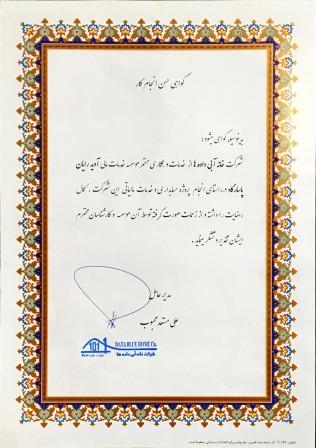 گواهی حسن انجام کار
بدینوسیله گواهی میشود:
شرکت خانه آبی داده ها از خدمات و همکاری مستمر موسسه خدمات مالی آوید رایان
پاسارگاد در راستای انجام پروژه حسابداری و خدمات مالیاتی این شرکت ، کمال
رضایت را داشته و از زحمات صورت گرفته توسط آن موسسه و کارشناسان محترم
ایشان تقدیر و تشکر مینماید.
مدیر عامل
علی مستعد محبوب
DATA BLUE HOME Co.
شرکت خانه آبی داده ها